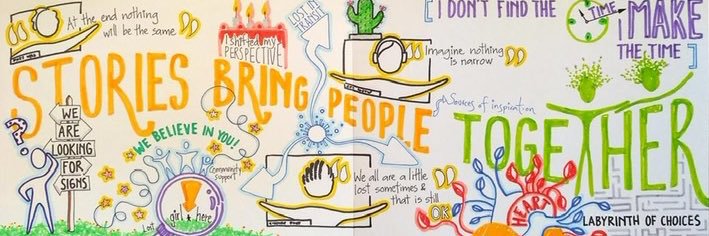 At the end nothing
will be the same
I shifted my
PERSPECTIVE
LOST IN
TRANSIT
I DON'T FIND THE
TIME
I MAKE
THE TIME
Imagine nothing
is narrow
STORIES BRING PEOPLE
TOGETHER
Sources of inspiration
WE
ARE
LOOKING
FOR
SIGNS
?
WE BELIEVE IN YOU!
community
support
girl
here
Lost
We all are a little
lost sometimes &
that is still
OK
HEART
LABYRINTH OF CHOICES